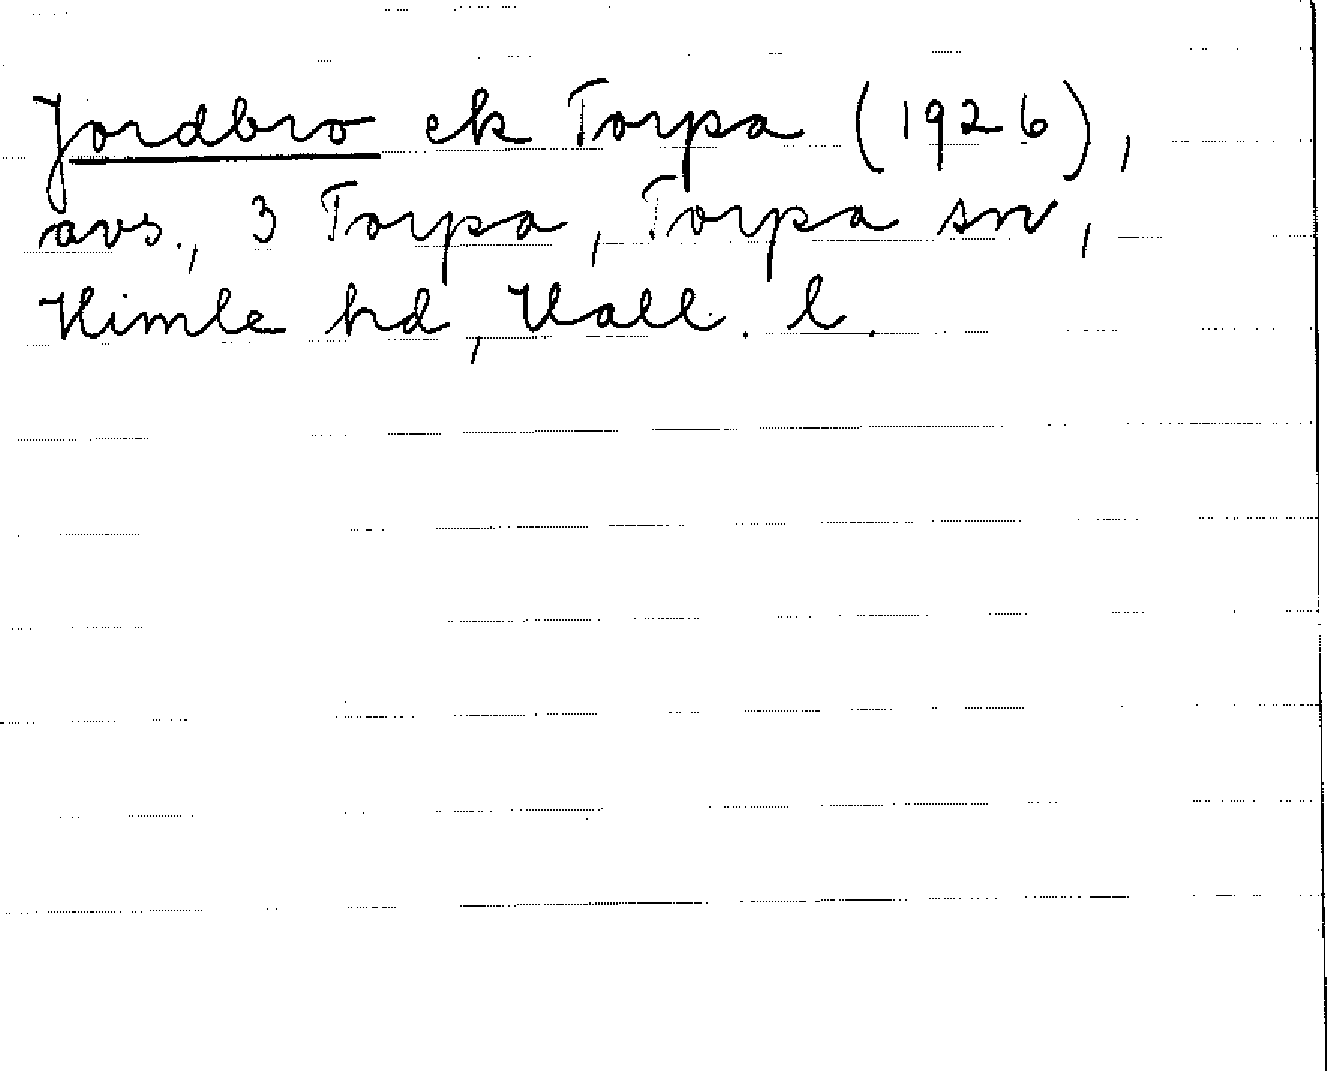 Jordbro ek Torpa (1926),
avs., 3 Torpa, Torpa sn,
Himle hd, Hall. l.